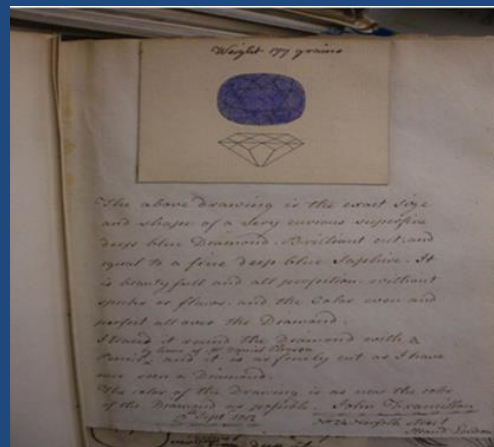 Weight 177 grains
The above drawing is the exact size
and shape of a very curious superfine
deep blue Diamond. Brilliant cut, and
equal to a fine deep blue Sapphire. It
is beauty full and all perfection without
specks or flaws, and the Color even and
perfect all over the Diamond.
I traced it round the Diamond with a
by leave of Mr Daniel Eliason
Pencil, and it is as finely cut as I have
ever seen a Diamond.
The color of the Drawing, is as near the color
of the Diamond as possible. John Francillon
Sept 1812 No 24 Norfolk street
Strand. London